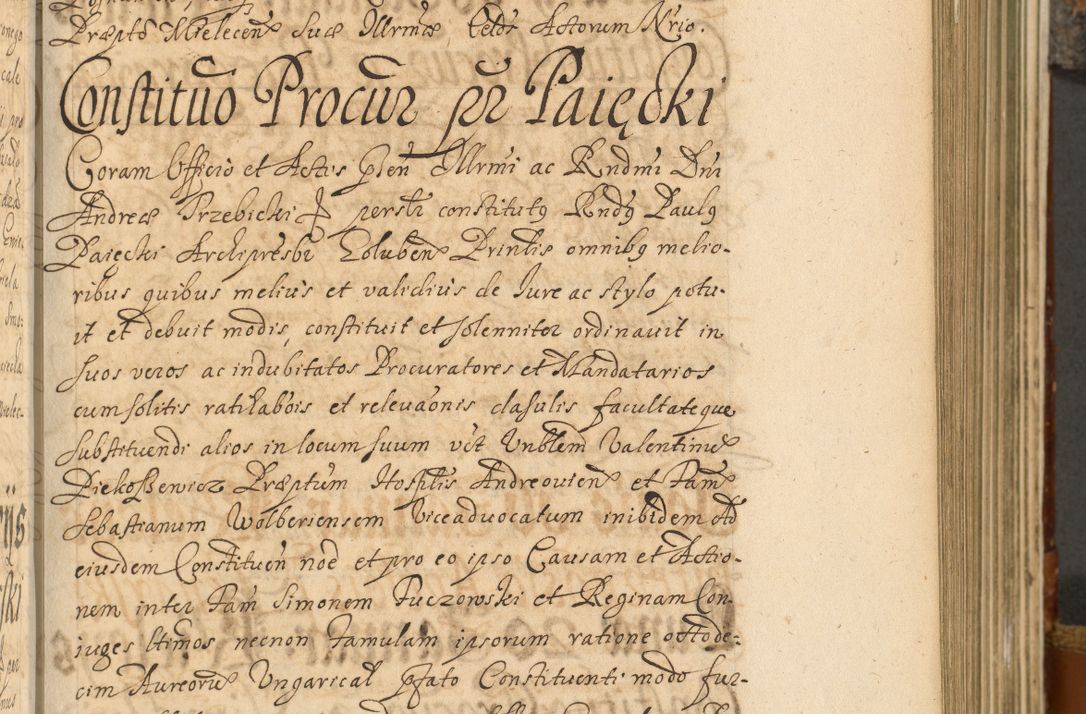 Præpto Mielecen Suæ Illrmæ Celds Actorum Nrio.
Constituo Procur pr Paięcki
Coram Officio et Actis psen Illrmi ac Rndmi Dni
Andreæ Trzebicki perslr constitutq Rndq Paulq
Paięcki Archipresbr Zoluben Prinlis omnibq melio-
ribus quibus melius et validius de Jure ac stylo potu-
it et debuit modis, constituit et solenniter ordinavit in
suos veros ac indubitatos Procuratores et Mandatarios
cum solitis ratihabois et relevaonis clasulis facultateque
substituendi alios in locum suum vct Vnblem Valentinu
Piekoszewicz Præptum Hosplis Andreovien et Fam
Sebastianum Wolbersensem Viceadvocatum inibidem Ad
eiusdem Constituen noe et pro eo ipso Causam et Actio-
nem inter Fam Simonem Tuczowski et Reginam Con-
iuges ltimos necnon Famulam ipsorum ratione octode-
cim Aureoru Ungarical pfato Constituenti modo fur-